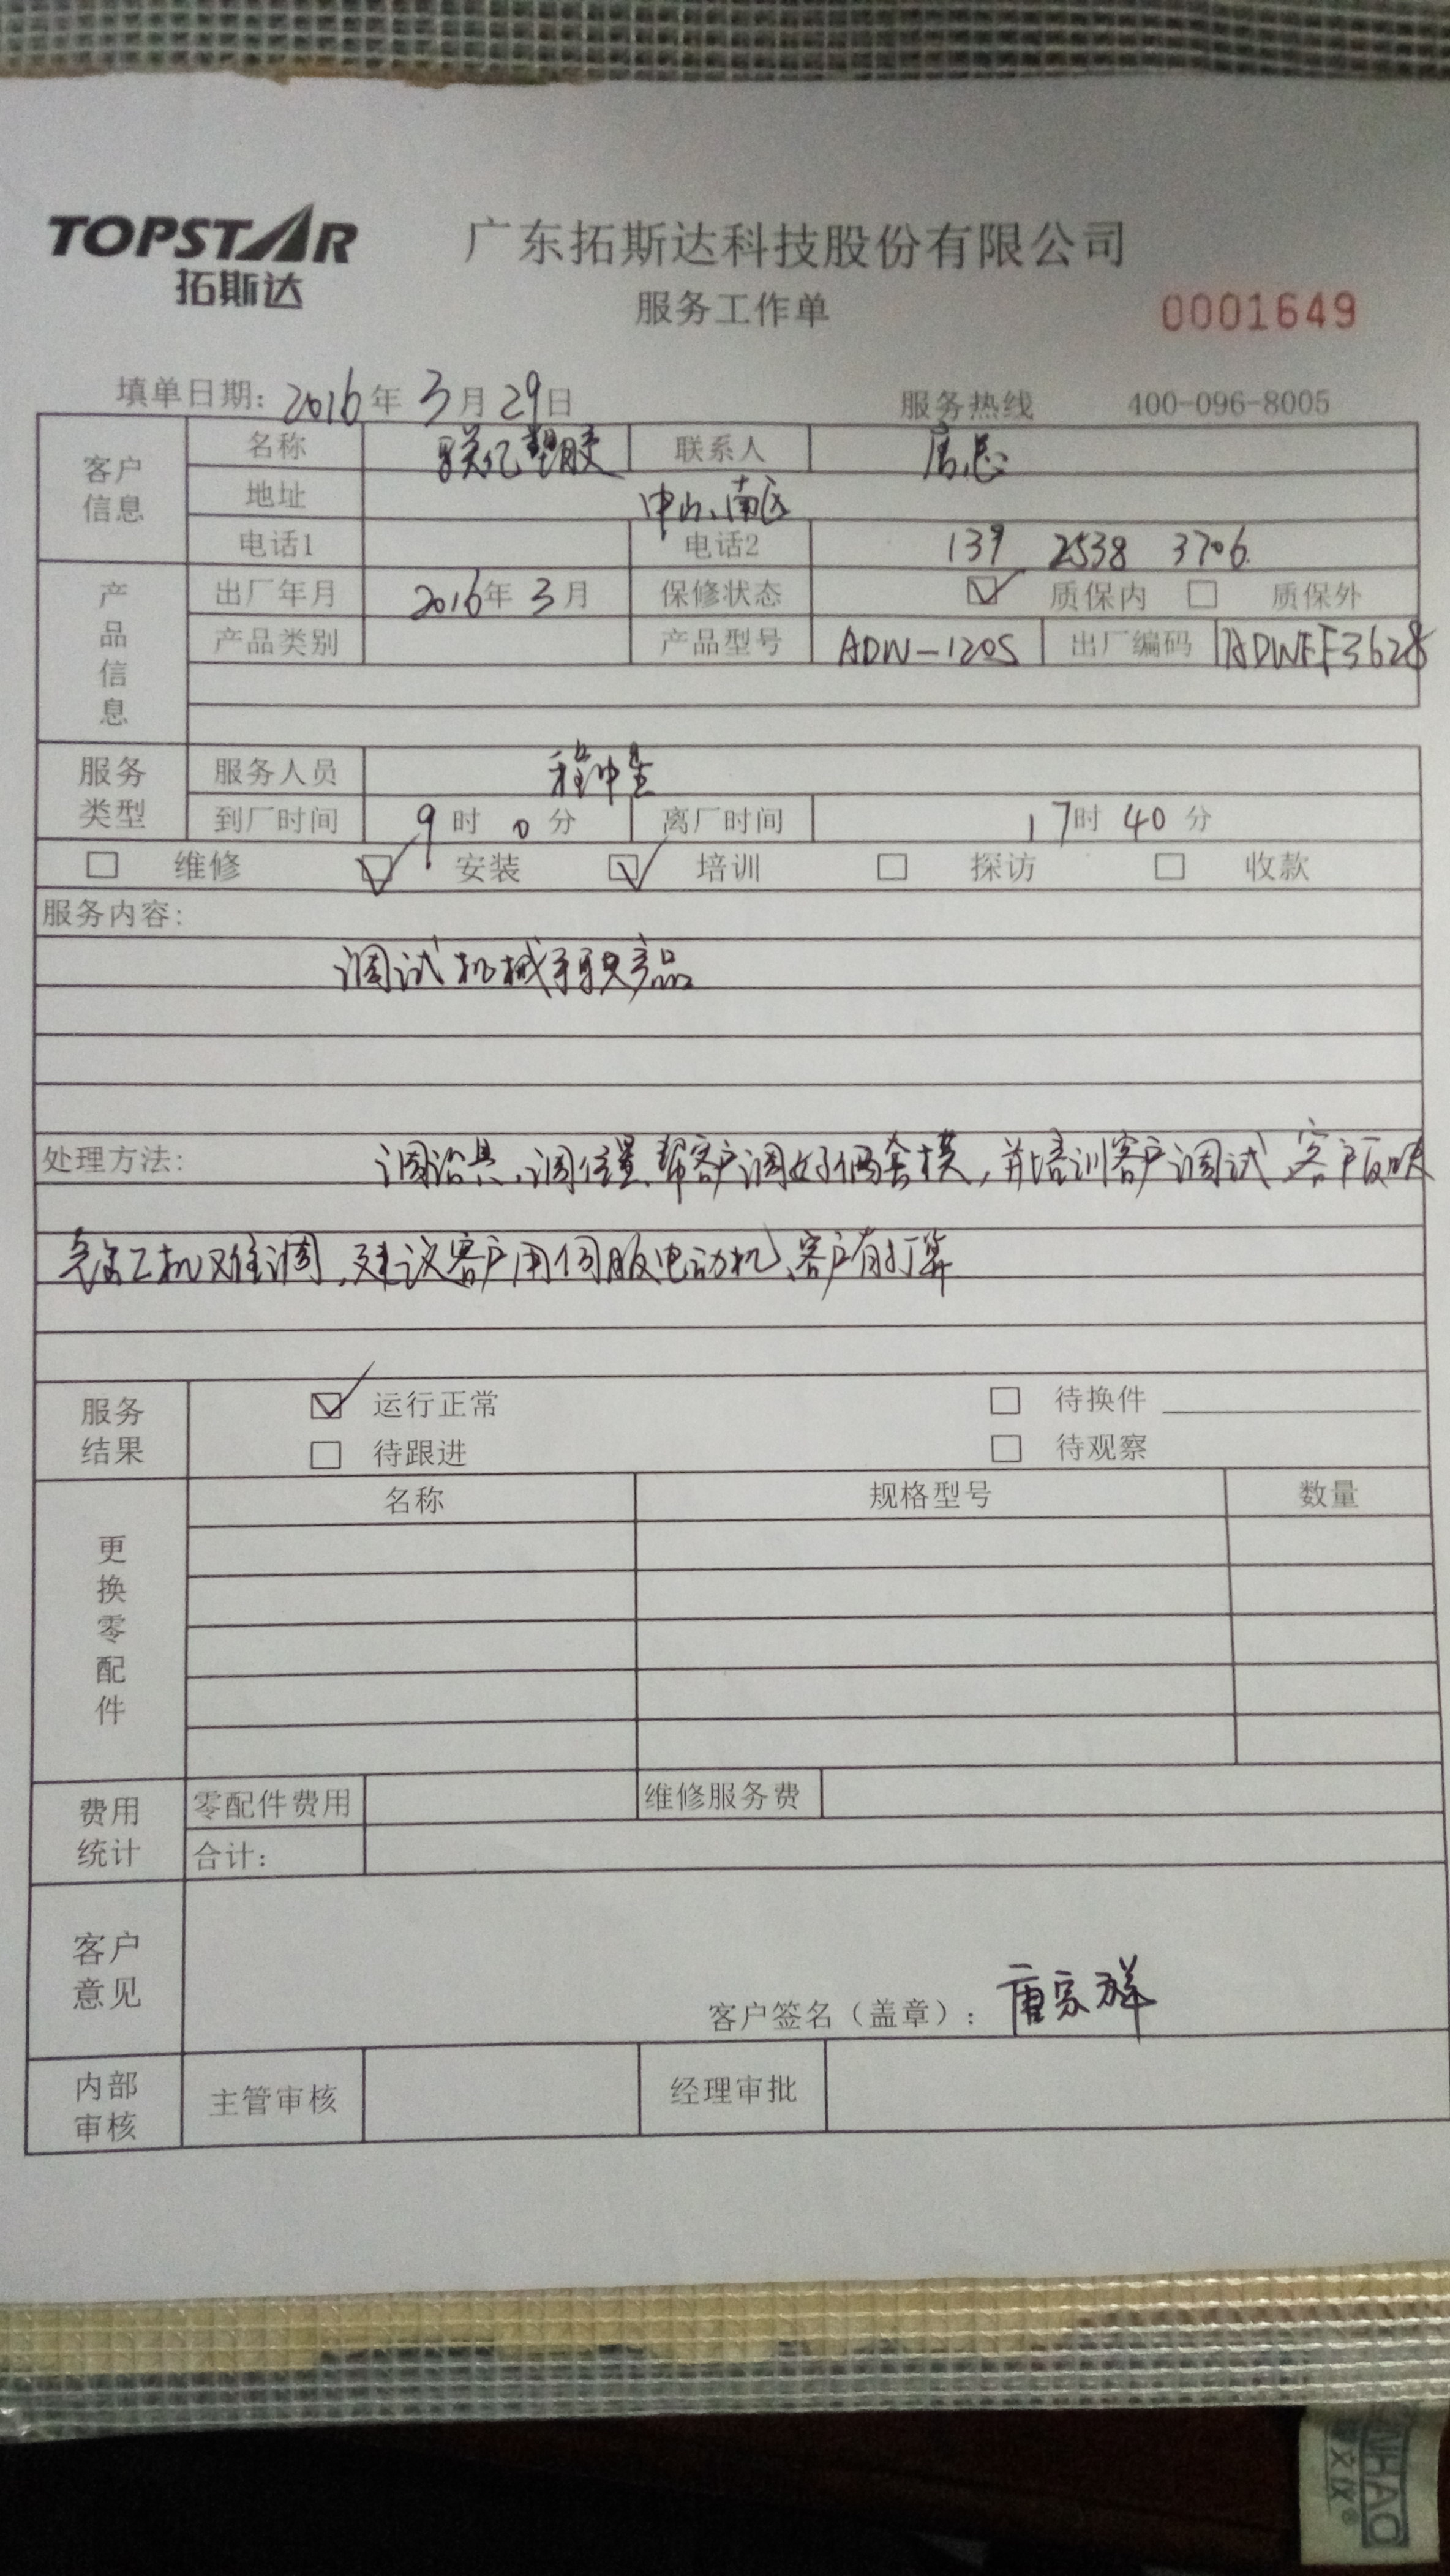 TOPSTAR
拓斯达
广东拓斯达科技股份有限公司
服务工作单
0001649
填单日期: 2016年 3月 29日
服务热线 400-096-8005
客户信息
名称 联亿塑胶 联系人 唐总
地址 中山、南区
电话1 电话2 139 2538 3706
产品信息
出厂年月 2016年 3月 保修状态 质保内 质保外
产品类别 产品型号 ADW-120S 出厂编码 ADWFF3628
服务类型
服务人员 程冲
到厂时间 9时 0分 离厂时间 17时 40分
维修 安装 培训 探访 收款
服务内容:
调试机械手取产品
处理方法: 调治具、调位置、帮客户调好俩套模,并培训客户调试、客户反映
机难调,建议客户用伺服电动机、客户有打算
服务结果
运行正常 待换件
待跟进 待观察
更换零配件
名称 规格型号 数量
费用统计
零配件费用 维修服务费
合计:
客户意见
客户签名(盖章): 唐宗祥
内部审核
主管审核 经理审批
NHAO
文仪®